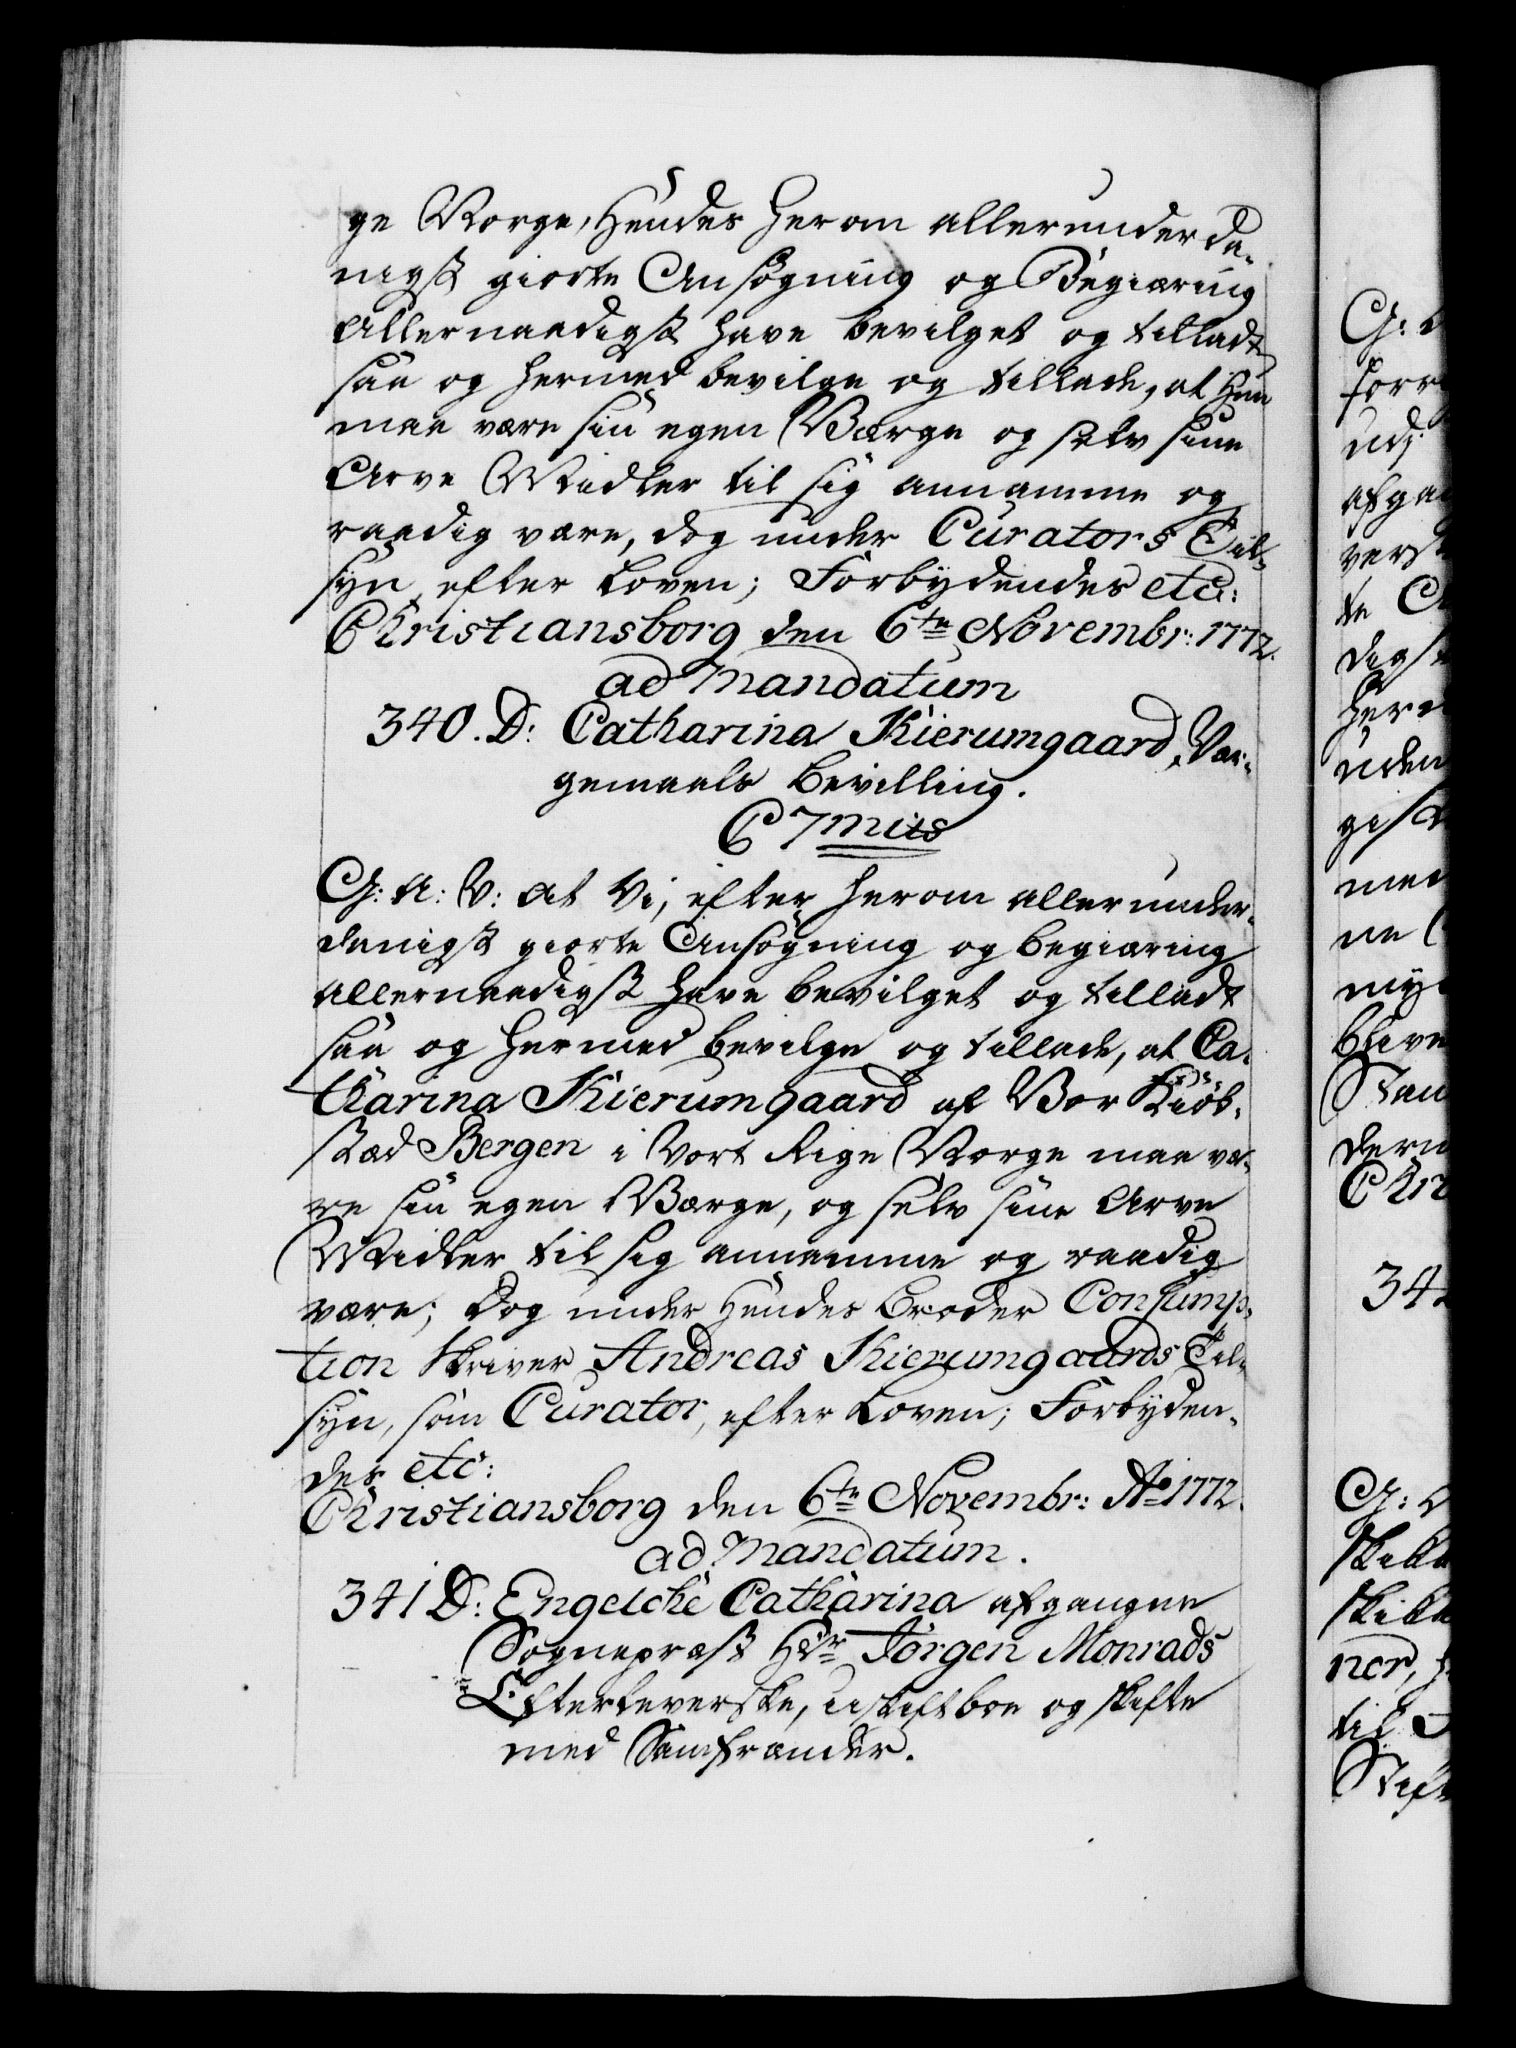 ge Norge, Hendes herom allerunderda-
nigst giorte Ansøgning og Begiæring
Allernaadigst have bevilget og tilladt
saa og hermed bevilge og tillade, at Hun
maa være sin egen Værge og selv sine
Arve Midler til sig annamme og
raadig være, dog under Curators Til-
syn efter Loven; Forbydendes etc:
Christiansborg den 6te Novembr: 1772.
ad Mandatum
340. D: Catharina Kierumgaard, Vær-
gemaals Bevilling.
C 7mus
G: A: V: at Vi, efter herom allerunder-
danigst giorte Ansøgning og begiæring
Allernaadigst have bevilget og tilladt
saa og hermed bevilge og tillade, at Ca-
tharina Kierumgaard af Vor Kiøb-
stæd Bergen i Vort Rige Norge maa væ-
re sin egen Værge, og selv sine Arve
Midler til sig annamme og raadig
være; Dog under Hendes Broder Consump-
tion Skriver Andreas Kierumgaards Til-
syn, som Curator, efter Loven; Forbyden-
des etc:
Christiansborg den 6te Novembr: Ao 1772.
ad Mandatum.
341 D: Engelche Catharina afgangne
Sognepræst Hr Jørgen Monrads
Efterleverske, uskiftboe og skifte
med Samfrænder.